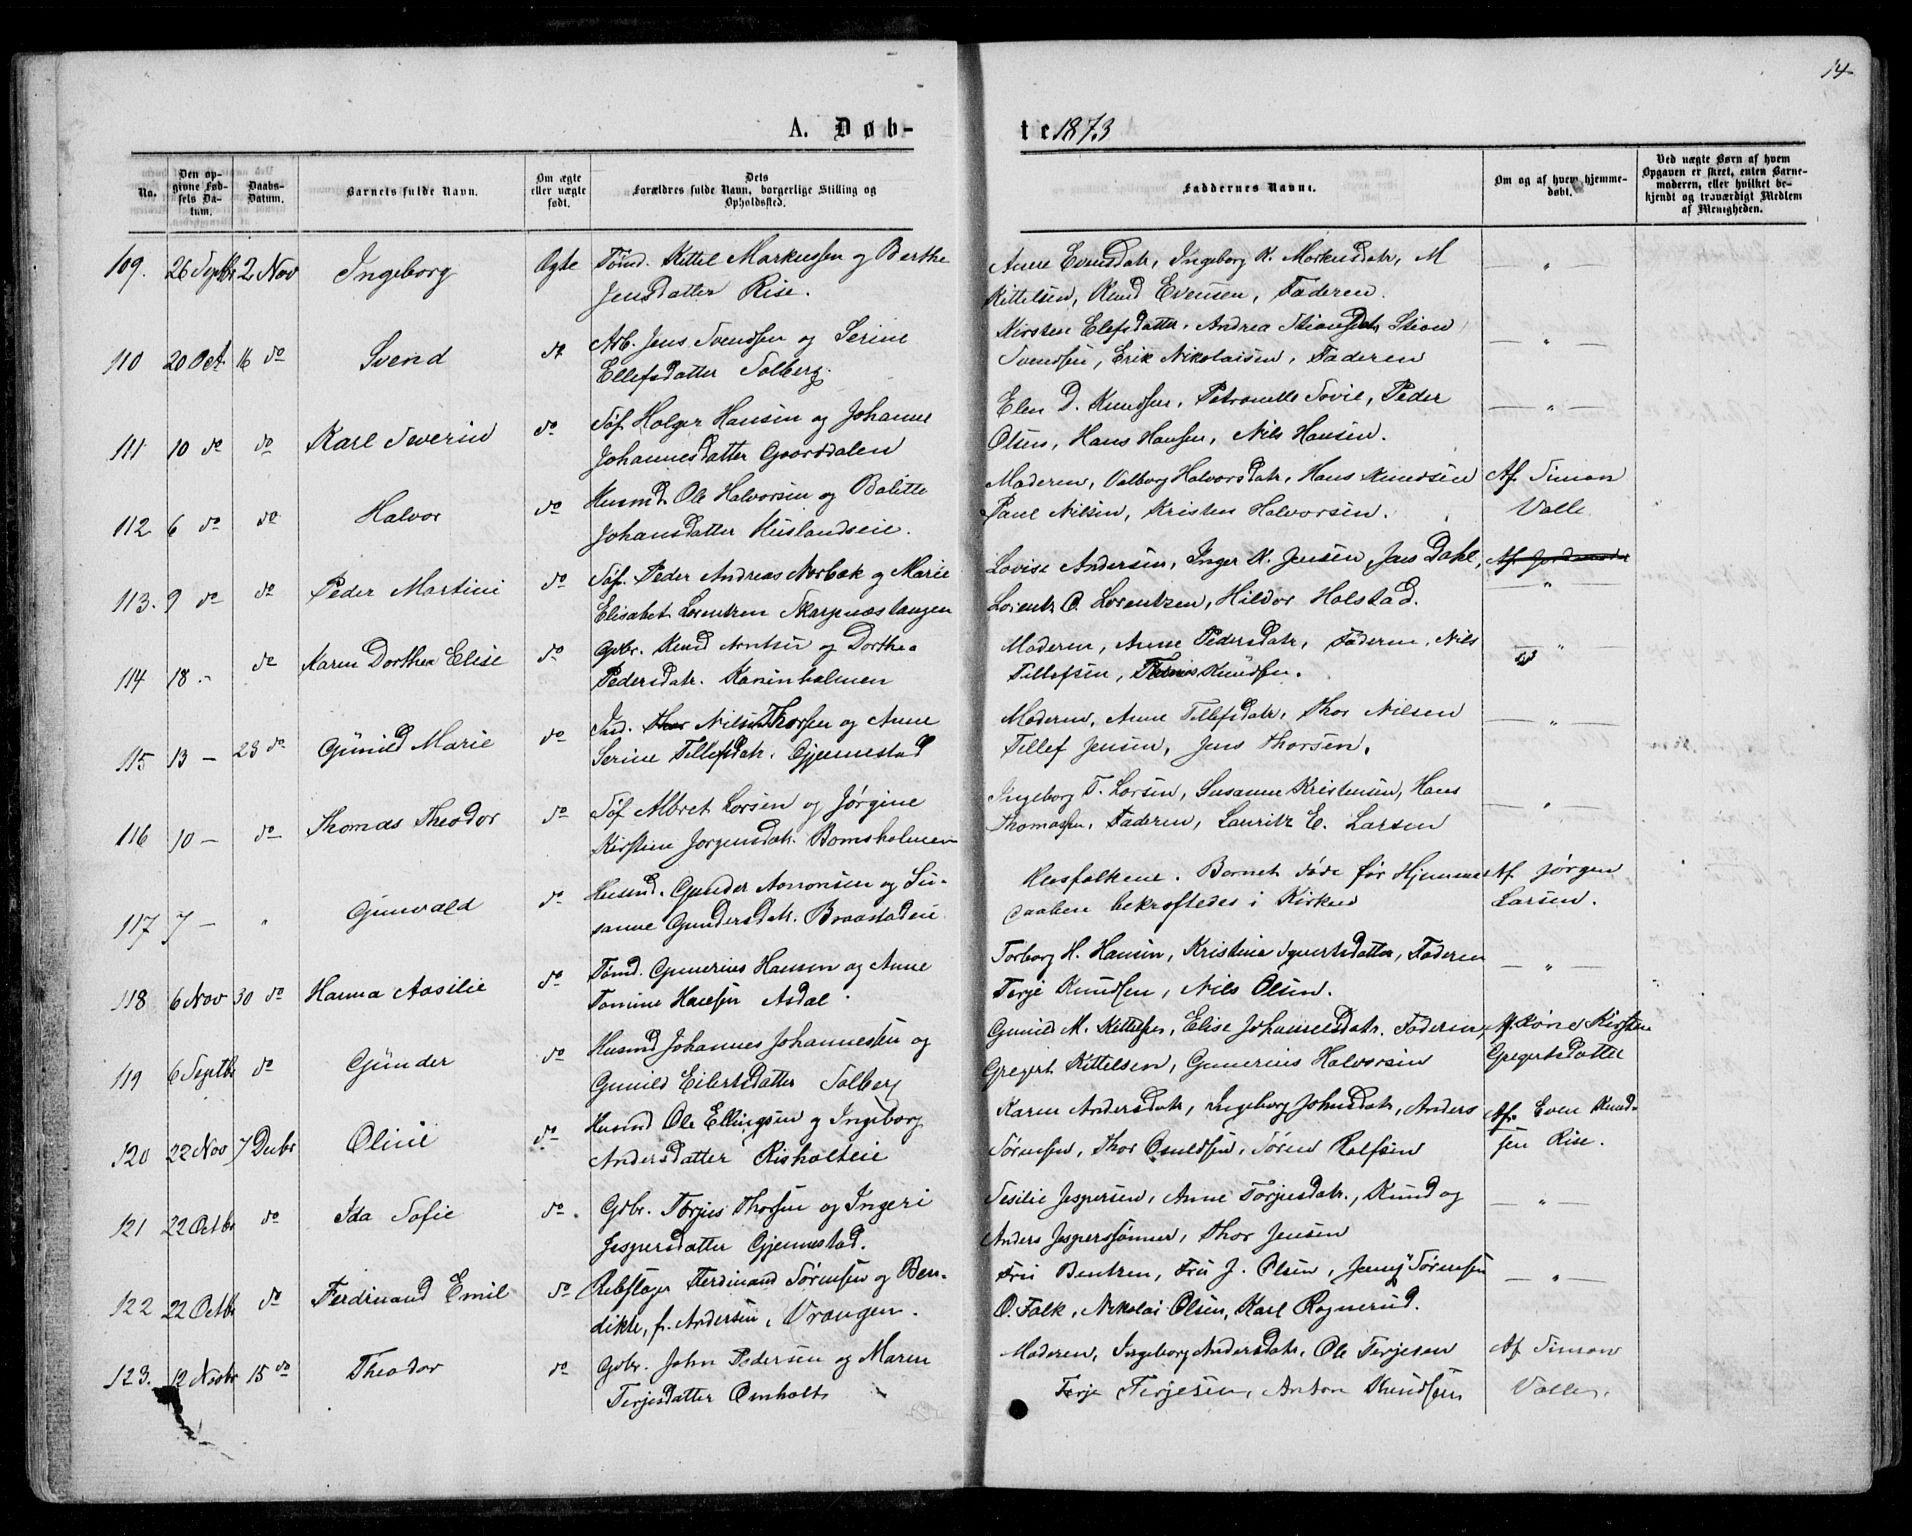 14
A. Døb-
te 1873
No.
Den op-
givne Fød-
sels Da-
tum.
Daabs-
Datum.
Barnets fulde Navn.
Om ægte
eller uægte
født.
Dets
Forældres fulde Navn, borgerlige Stilling og
Opholdssted.
Faddernes Navne.
Om og af hvem hjemme-
døbt.
Ved uægte Børn af hvem
Opgaven er skeet, enten Barne-
moderen, eller hvilket be-
kjendt og troværdigt Medlem
af Menigheden.
109. 26 Septbr 2 Nov Ingeborg Ægte Tømd. Kittel Markussen og Berthe
Jensdatter Rise.
Anne Evensdatr, Ingeborg K. Markusdatr, M
Kittelsen, Knud Evensen, Faderen.
— " —
110 20 Oct. 16 do Svend do Arb. Jens Svendsen og Serine
Ellefsdatter Solberg.
Kirsten Elefsdatter, Andrea Stiansdatr Stian
Svendsen, Erik Nikolaisen, Faderen
— " —
111 10 do do Karl Severin do Søf. Holger Hansen og Johanne
Johannesdatter Gaarddalen
Elen D. Knudsen, Petronelle Tovie, Peder
Olsen, Hans Hansen, Nils Hansen.
— " —
112 6 do do Halvor do Husmd. Ole Halvorsen og Bolitte
Johansdatter Huslandseie.
Moderen, Valborg Halvorsdatr, Hans Knudsen
Paul Nilsen, Kristen Halvorsen.
Af Simon
Valle
113. 9 do do Peder Martini do Søf. Peder Andreas Norbek og Marie
Elisabet Lorentzen Skarpnæstangen
Lovise Andersen, Inger K. Jensen, Jens Dahl,
Lorentz O. Lorentzen, Hildor Holstad.
— " —
114 18 - do Karen Dorthea Elise do Gbr. Knud Arntsen og Dorthea
Pedersdatr. Kaninholmen
Moderen, Anne Pedersdatr, Faderen, Nils
Tellefsen, Knudsen.
— " —
115 13 — 23 do Gunild Marie do Ind. Nils Thorsen og Anne
Serine Tellefsdatr. Gjennestad
Moderen, Anne Tellefsdatr, Thor Nilsen
Tellef Jensen, Jens Thorsen.
— " —
116 10 — do Thomas Theodor do Søf Albret Larsen og Jørgine
Kirstine Jørgensdatr. Bomsholmen
Ingeborg T. Larsen, Susanne Kristensen, Hans
Thomassen, Faderen, Lauritz E. Larsen
— " —
117 7 — " Gunvald do Husmd. Gunder Aanonsen og Su-
sanne Gundersdatr. Braastadeie
Husfolkene. Barnet døde før Hjemme
daaben bekræftedes i Kirken
Af Jørgen
Larsen.
118 6 Nov 30 do Hanna Aasilie do Tømd. Gunerius Hansen og Anne
Tomine Hansen Asdal.
Torborg H. Hansen, Kristine Syvertsdatter, Faderen
Terje Knudsen, Nils Olsen.
— " —
119 6 Septbr do Gunder do Husmd Johannes Johannessen og
Gunild Eilertsdatter Solberg
Gunild M. Kittelsen, Elise Johannesdatr. Faderen,
Gregert Kittelsen, Gunerius Halvorsen
Af Kone Kirstine
Gregertsdatter
120 22 Nov 7 Decbr Oline do Husmd Ole Ellingsen og Ingeborg
Andersdatter Risholteie
Karen Andersdatr, Ingeborg Johnsdatr, Anders
Sørensen, Thor Osuldsen, Søren Rolfsen
Af. Even Knud-
sen Rise.
121 22 Octbr do Ida Sofie do. Gbr. Terjus Thorsen og Ingeri
Jespersdatter Gjennestad.
Sesilie Jespersen, Anne Torjusdatr., Knud og
Anders Jesperssønner, Thor Jensen
— " —
122 22 Octbr do Ferdinand Emil do Rebslager Ferdinand Sørensen og Ben-
dikte, f. Andersen, Vrangen.
Fru Bentzen, Fru J. Olsen, Jenny Sørensen
O. Falk, Nikolai Olsen, Karl Rognerud.
— " —
123. 12 Novbr 15 do Theodor do Gbr. John Pedersen og Maren
Terjesdatter Omholt
Moderen, Ingeborg Andersdatr, Ole Terjesen
Terje Terjesen, Anton Knudsen
Af Simon
Valle.